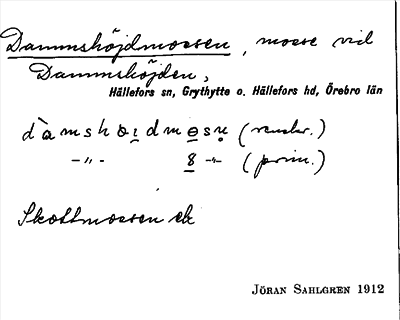 Dammshöjdmossen, mosse vid
Dammshöjden,
Hällefors sn, Grythytte o. Hällefors hd, Örebro län
dàmshöıdmosn̥
-"- 8 -"- (prim.)
Skottmossen ek
JÖRAN SAHLGREN 1912